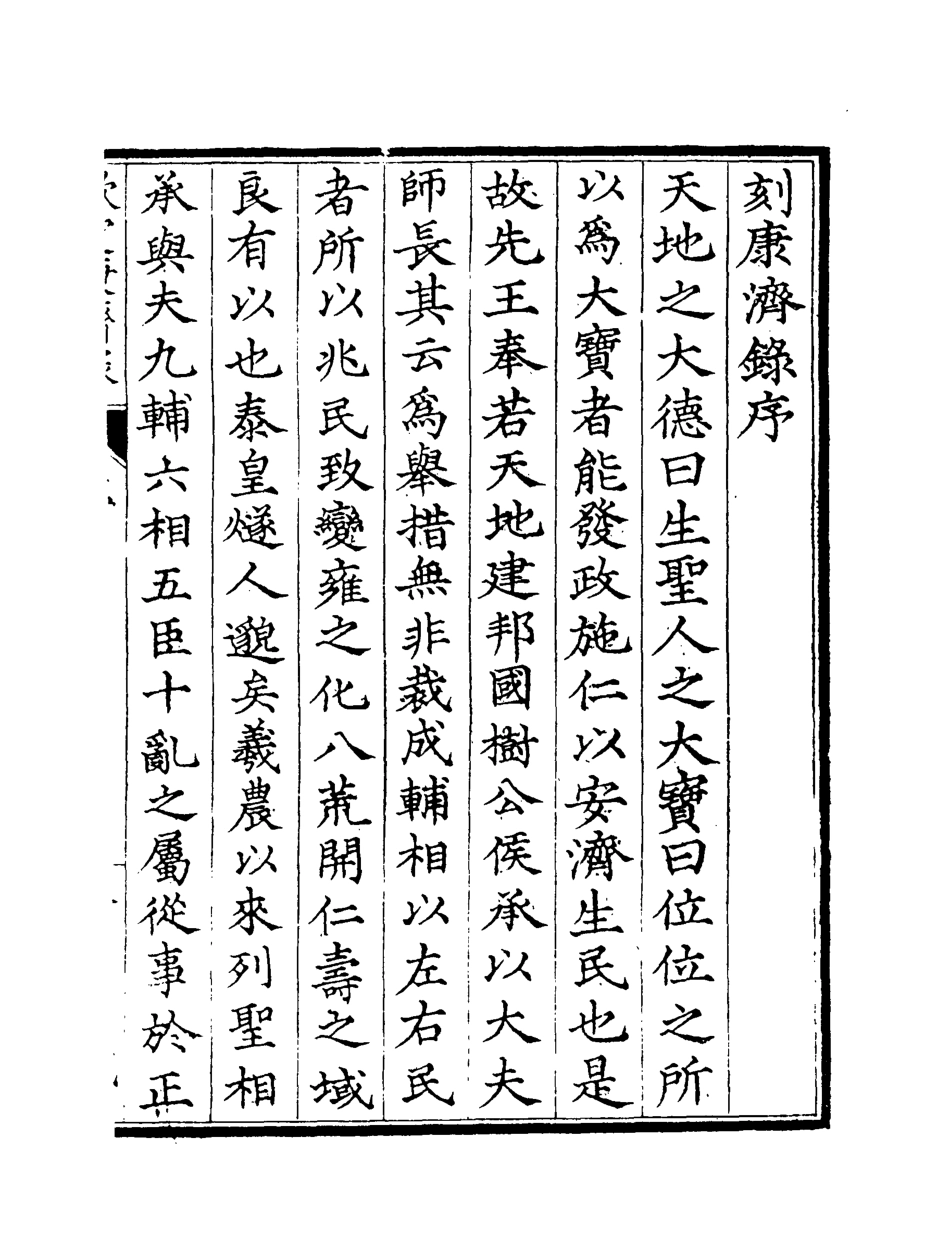 刻康濟錄序
天地之大德曰生聖人之大寶曰位位之所
以爲大寶者能發政施仁以安濟生民也是
故先王奉若天地建邦國樹公侯承以大夫
師長其云爲舉措無非裁成輔相以左右民
者所以兆民致變雍之化八荒開仁壽之域
良有以也泰皇燧人邈矣羲農以來列聖相
承與夫九輔六相五臣十亂之屬從事於正